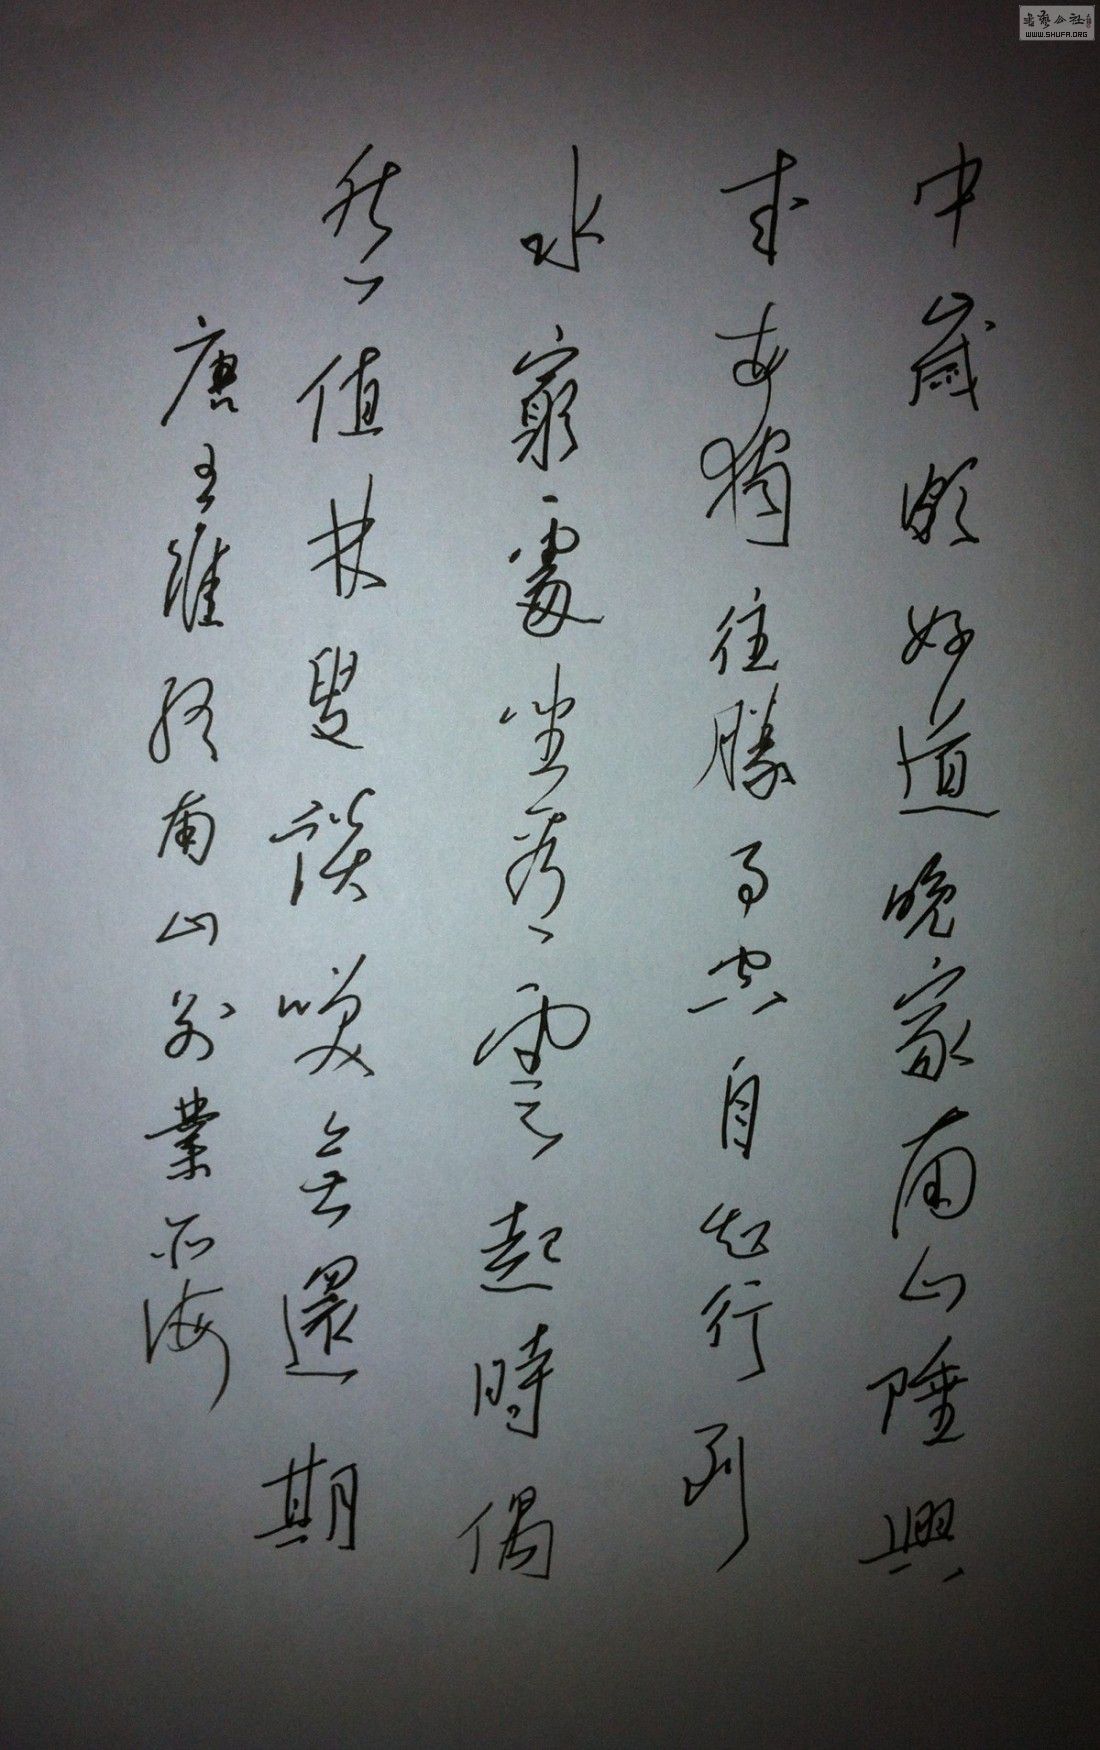 中歲頗好道晚家南山陲興
来每獨往勝事空自知行到
水窮處坐看雲起時偶
然值林叟談笑無還期
唐王維終南山別業 石海
书艺公社
WWW.SHUFA.ORG